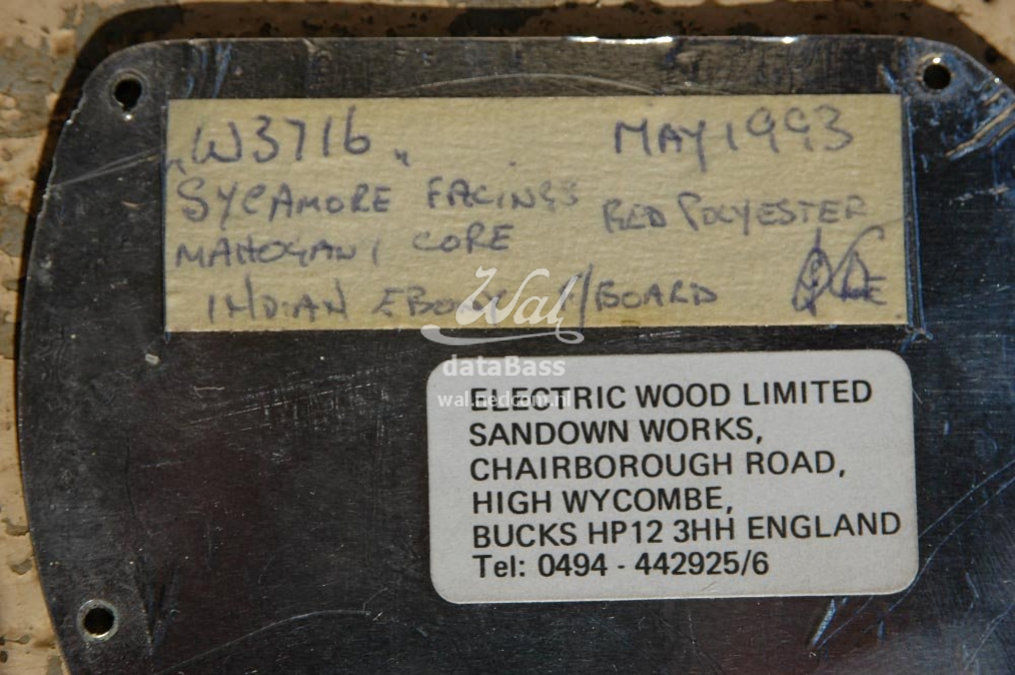 "W3716" MAY 1993
SYCAMORE FACINGS RED POLYESTER
MAHOGANY CORE
INDIAN EBONY F/BOARD
Wal
dataBass
wal.nedcom.nl
ELECTRIC WOOD LIMITED
SANDOWN WORKS,
CHAIRBOROUGH ROAD,
HIGH WYCOMBE,
BUCKS HP12 3HH ENGLAND
Tel: 0494 - 442925/6